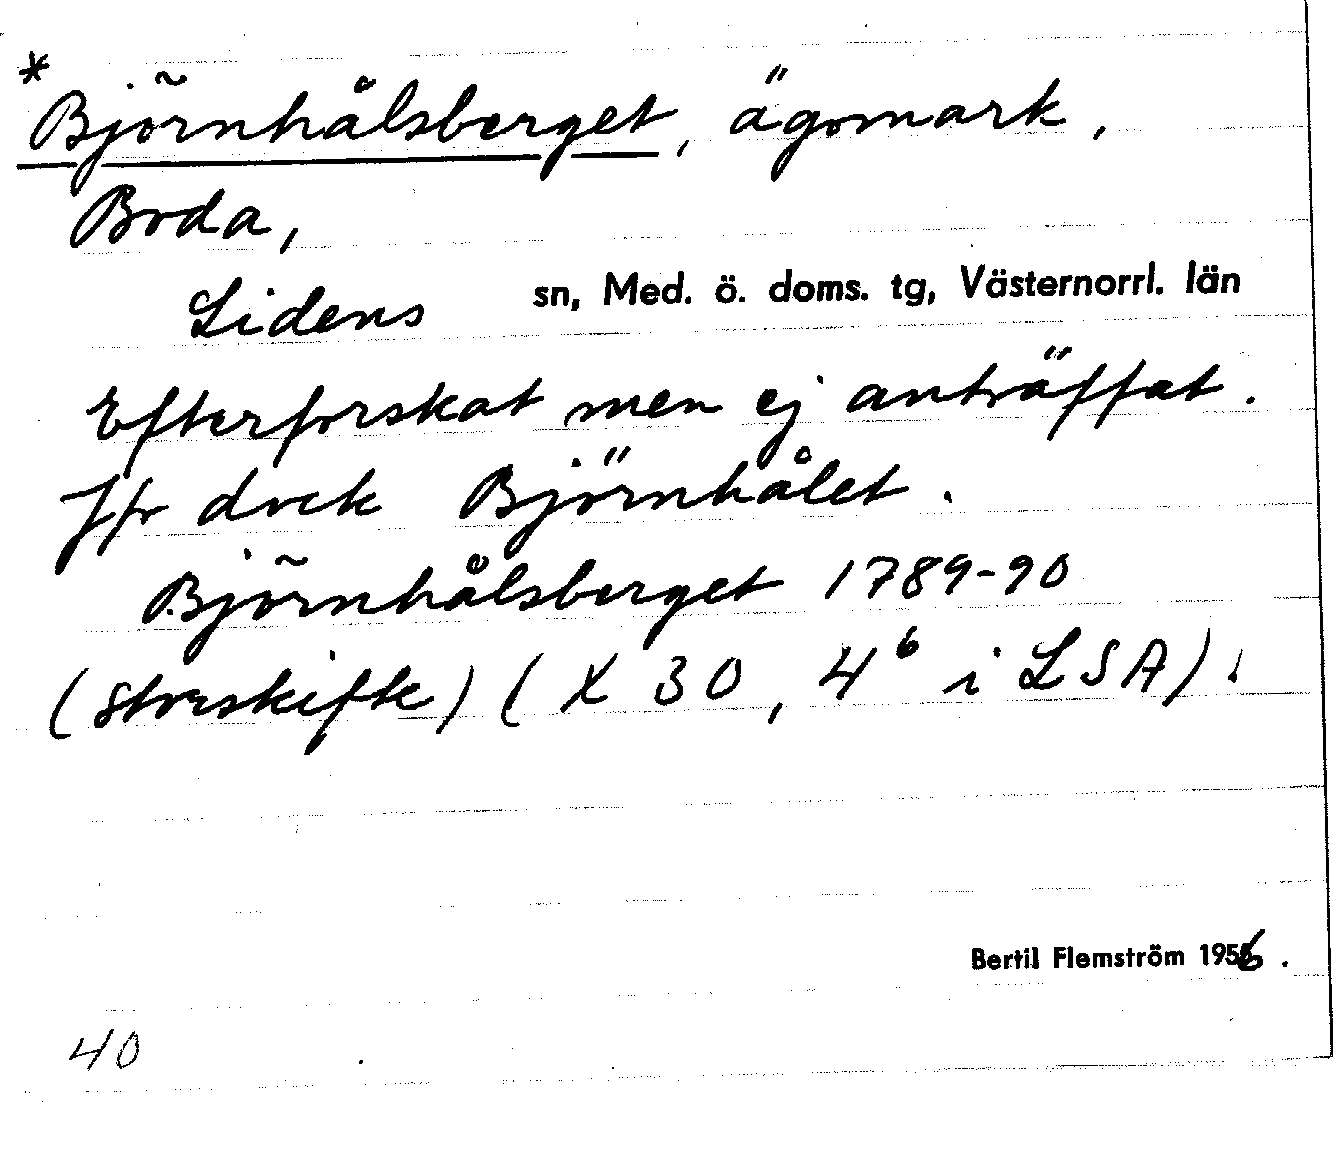 * Björnhålsberget, ägomark,
Boda,
Lidens sn, Med. ö. doms. tg, Västernorrl. län
Efterforskat men ej anträffat.
Jfr dock Björnhålet.
Björnhålsberget 1789-90
(storskifte) (X 30, 4⁶ i LSA).
Bertil Flemström 1956.
40